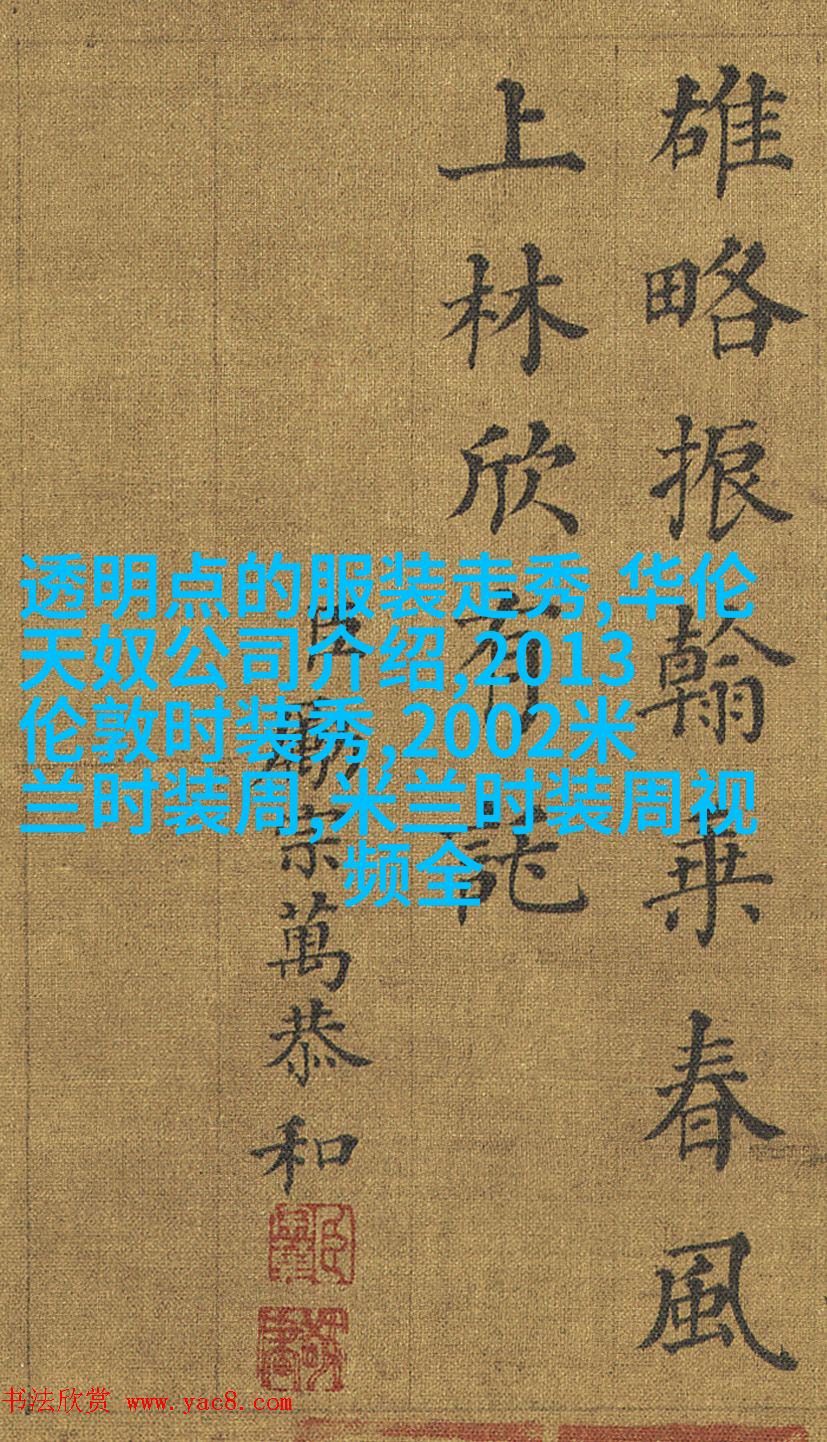 雄略振翰乗春風
上林欣有
臣勵宗萬恭和
透明点的服装走秀,华伦
天奴公司介绍,2013
伦敦时装秀,2002米
兰时装周,米兰时装周视
频全
书法欣赏 www.yac8.com